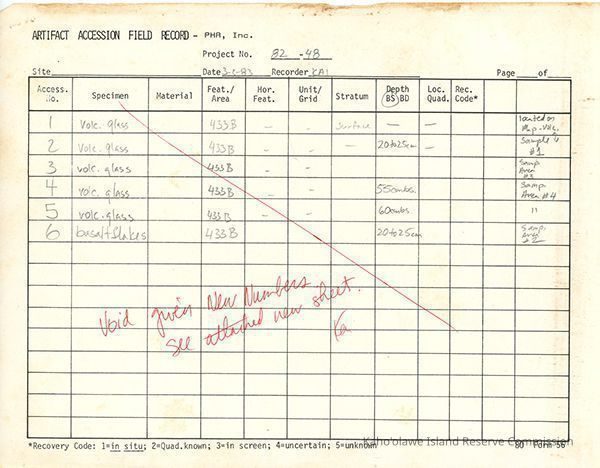 ARTIFACT ACCESSION FIELD RECORD - PHRI, Inc.
Project No. 82-48
Site Date 3-6-83 Recorder KAI Page of
Access. No. Specimen Material Feat./ Area Hor. Feat. Unit/ Grid Stratum Depth BS/BD Loc. Quad. Rec. Code*
1 Volc. glass 433B - - Surface - - located on Map - Volc.
2 Volc. glass 433B - - - 20to25cm - Sample #1
3 volc. glass 433B - - Samp Area
4 volc. glass 433B - - 55cmbs. Samp Area #4
5 volc. glass 433B - - 60cmbs. "
6 basalt flakes 433B 20to25cm Samp. Area #2
Void given New Numbers
See attached new sheet.
*Recovery Code: 1=in situ; 2=Quad.known; 3=in screen; 4=uncertain; 5=unknown 80 Form 56
Kaho'olawe Island Reserve Commission